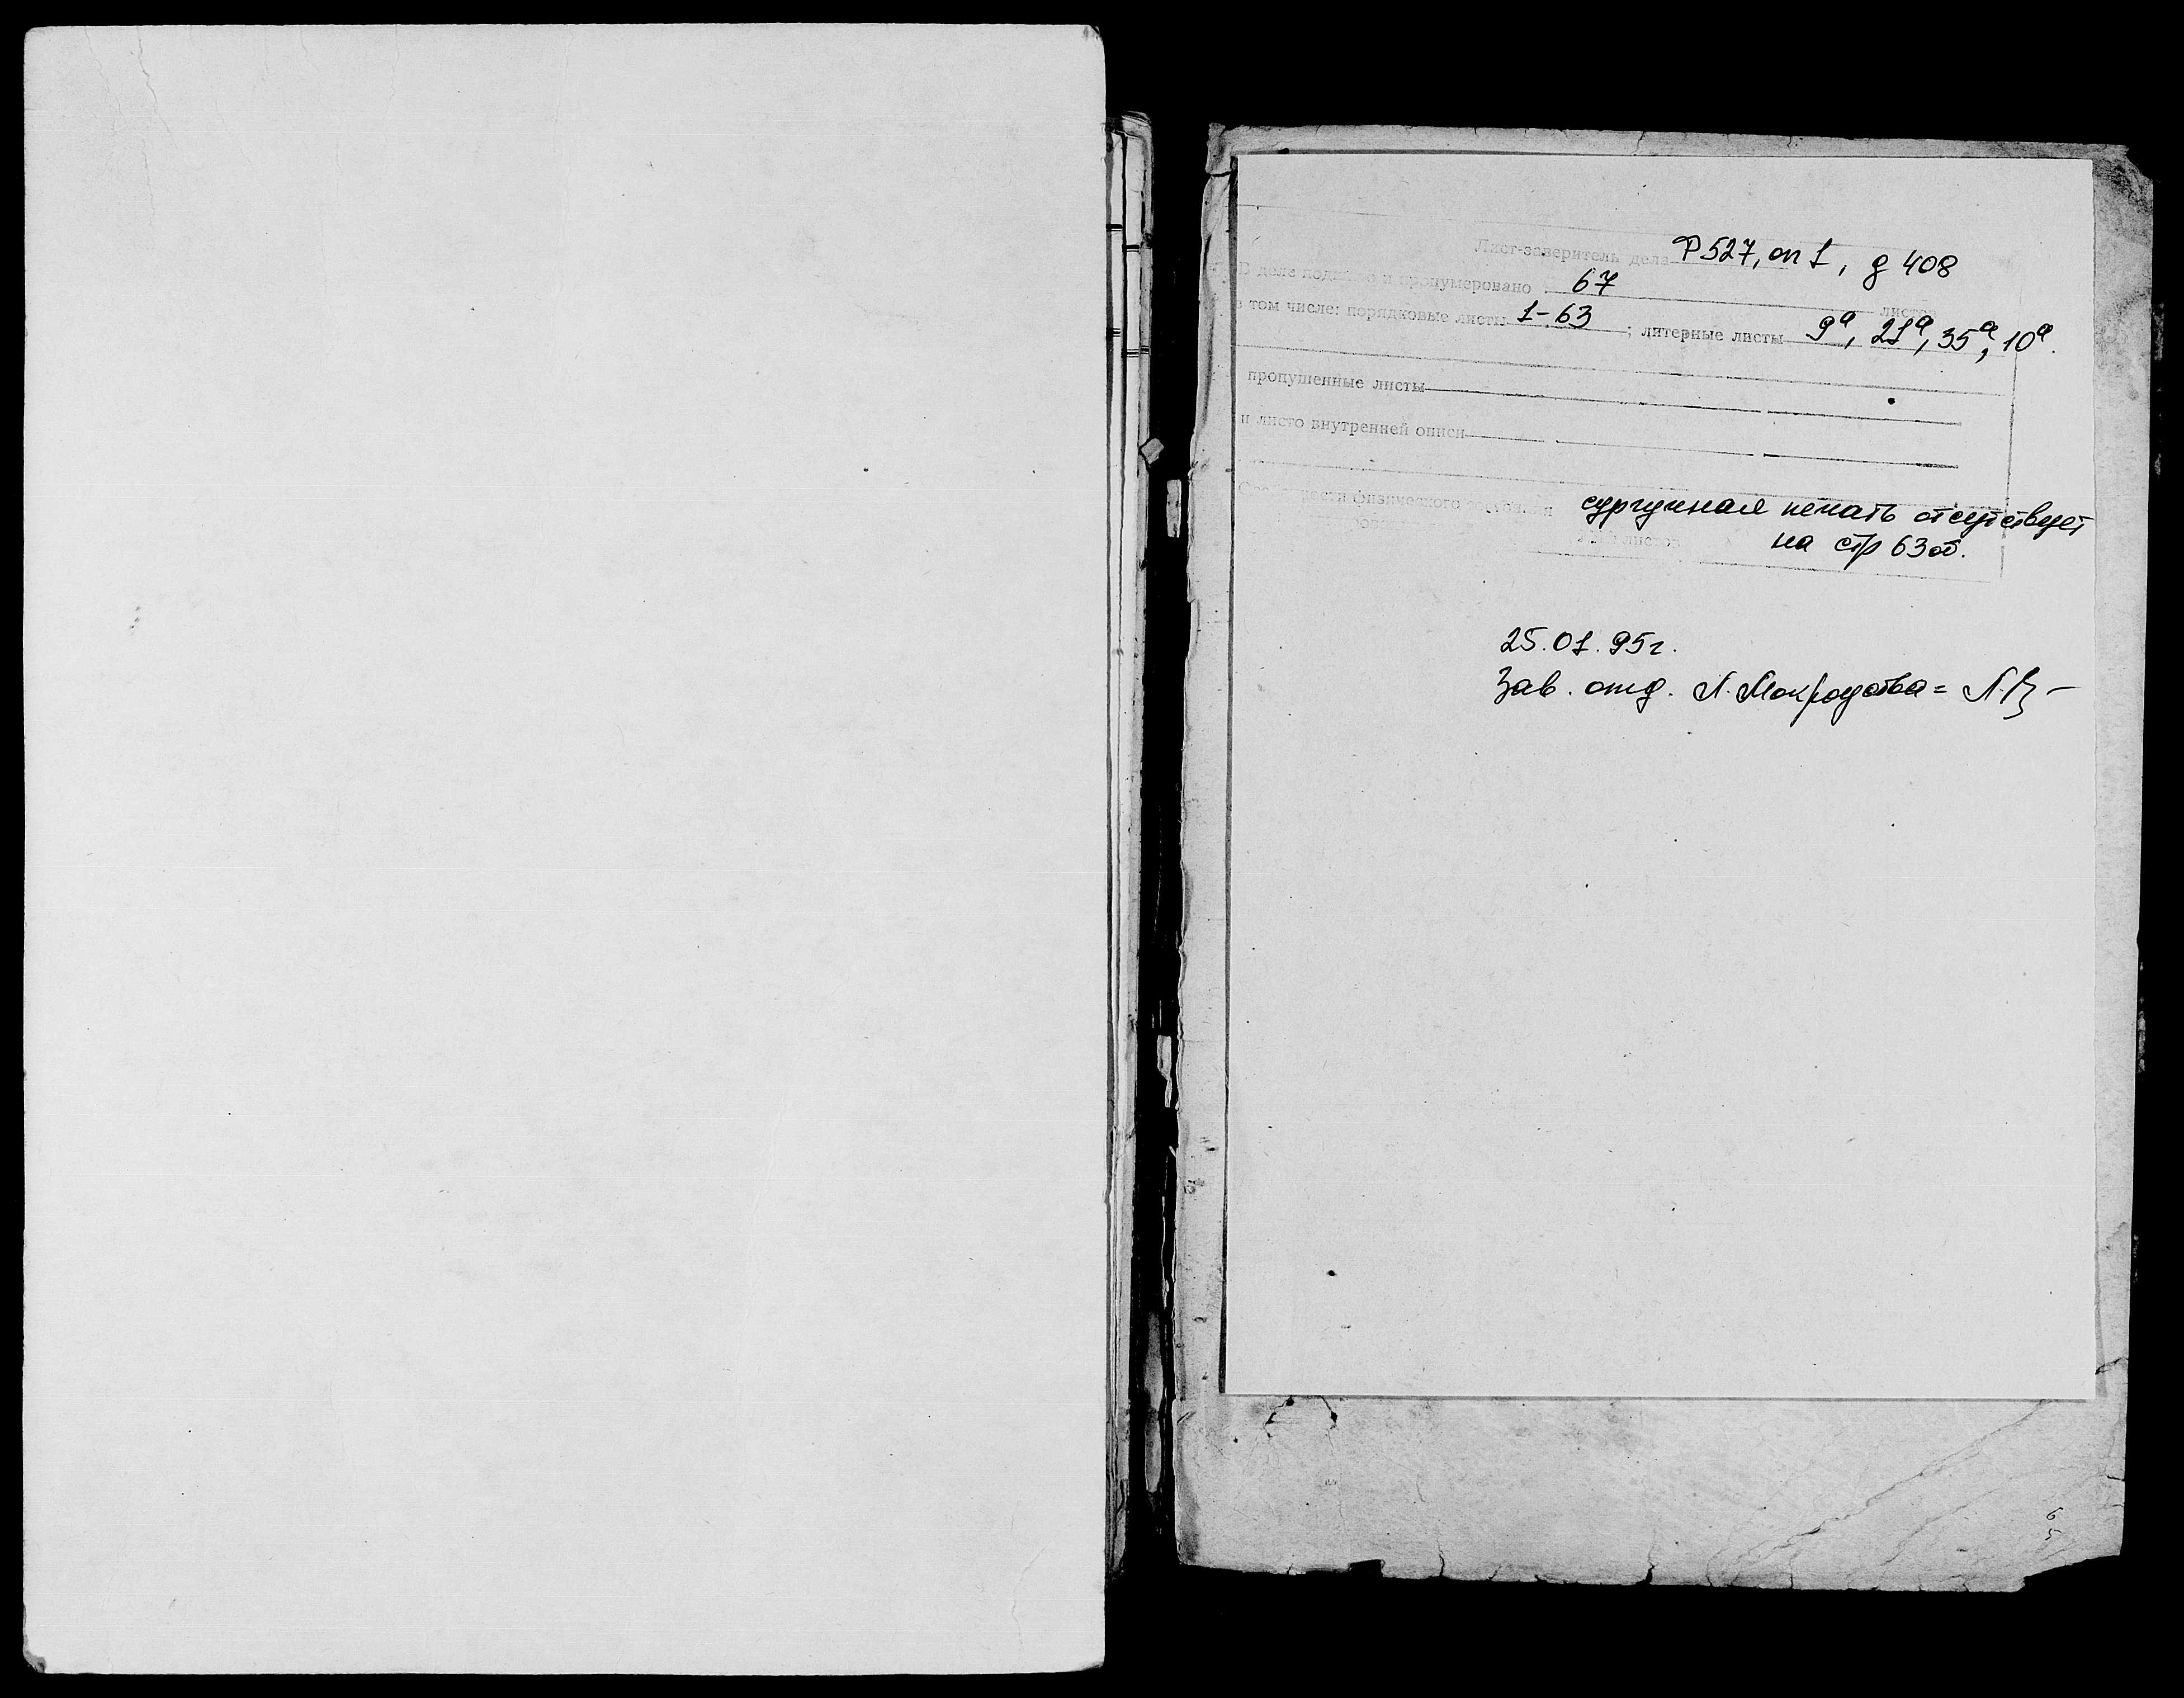 Лист-заверитель дела Р 527, оп 1, д 408
В деле подшито и пронумеровано 67 листов
в том числе: порядковые листы 1-63; литерные листы 9а, 21а, 35а, 10а.
пропущенные листы
и листо внутренней описи
физического
сургучная печать отсутствует
листов на стр 63 об.
25.01.95г.
Зав. отд.